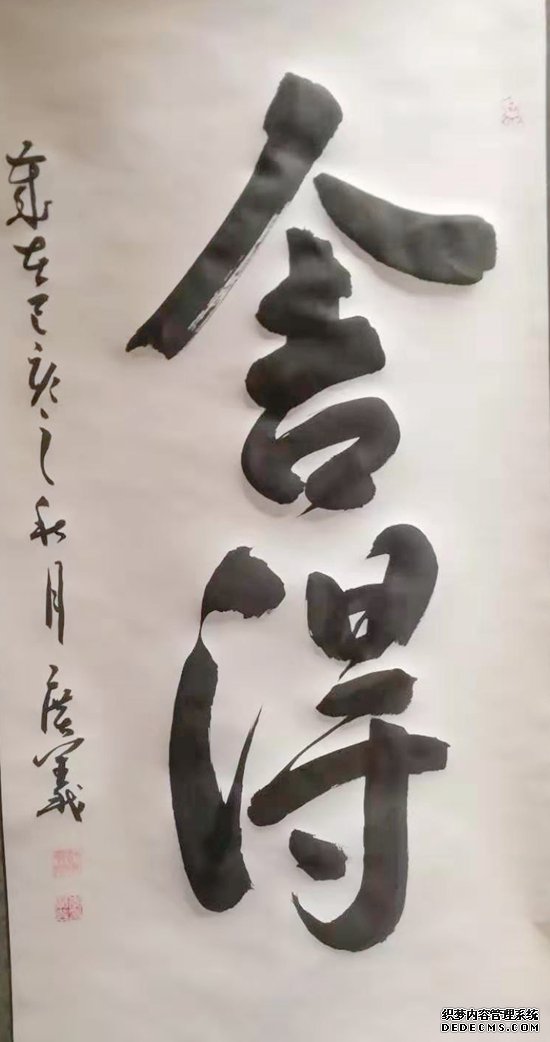 舍得
歲在己亥之秋月 廣義
织梦内容管理系统
DEDECMS.COM